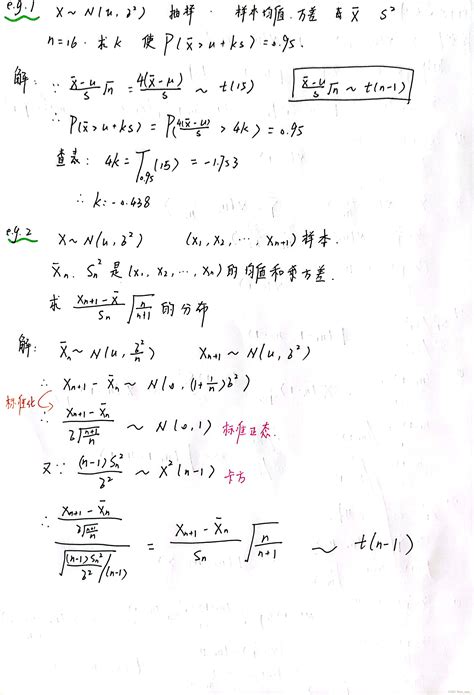 e.g.1 X~N(u, σ²) 抽样. 样本均值.方差 为 x̄ S²
n=16. 求k 使 P(x̄>u+ks)=0.95.
解: ∵ (x̄-u)/s √n = 4(x̄-u)/s ~ t(15) (x̄-u)/s √n ~ t(n-1)
∴ P(x̄>u+ks) = P(4(x̄-u)/s > 4k) = 0.95
查表: 4k = T₀.₉₅(15) = -1.753
∴ k=-0.438
e.g.2 X~N(u, σ²) (x₁, x₂, ..., xₙ₊₁)样本.
x̄ₙ. Sₙ² 是(x₁, x₂, ..., xₙ)的均值和方差.
求 (xₙ₊₁-x̄)/Sₙ √(n/(n+1)) 的分布
解: x̄ₙ~N(u, σ²/n) xₙ₊₁~N(u, σ²)
∴ xₙ₊₁-x̄ₙ ~ N(0, (1+1/n)σ²)
标准化
∴ (xₙ₊₁-x̄ₙ)/(σ√((n+1)/n)) ~ N(0,1) 标准正态.
又∵ (n-1)Sₙ²/σ² ~ X²(n-1) 卡方
∴ ((xₙ₊₁-x̄ₙ)/(σ√((n+1)/n)))/√((n-1)Sₙ²/σ²/(n-1)) = (xₙ₊₁-x̄ₙ)/Sₙ √(n/(n+1)) ~ t(n-1)